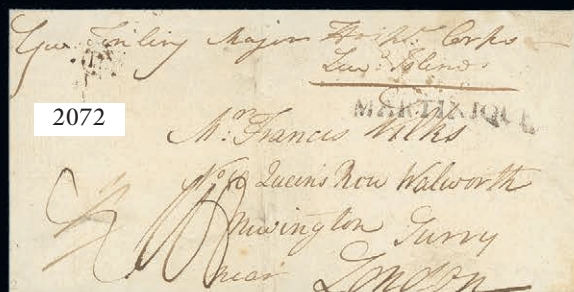 Geo. Tinling Major
Corps
Island
MARTINIQUE
2072
Mr. Francis Wilks
No. 18 Queen's Row Walworth
Newington Surry
near London